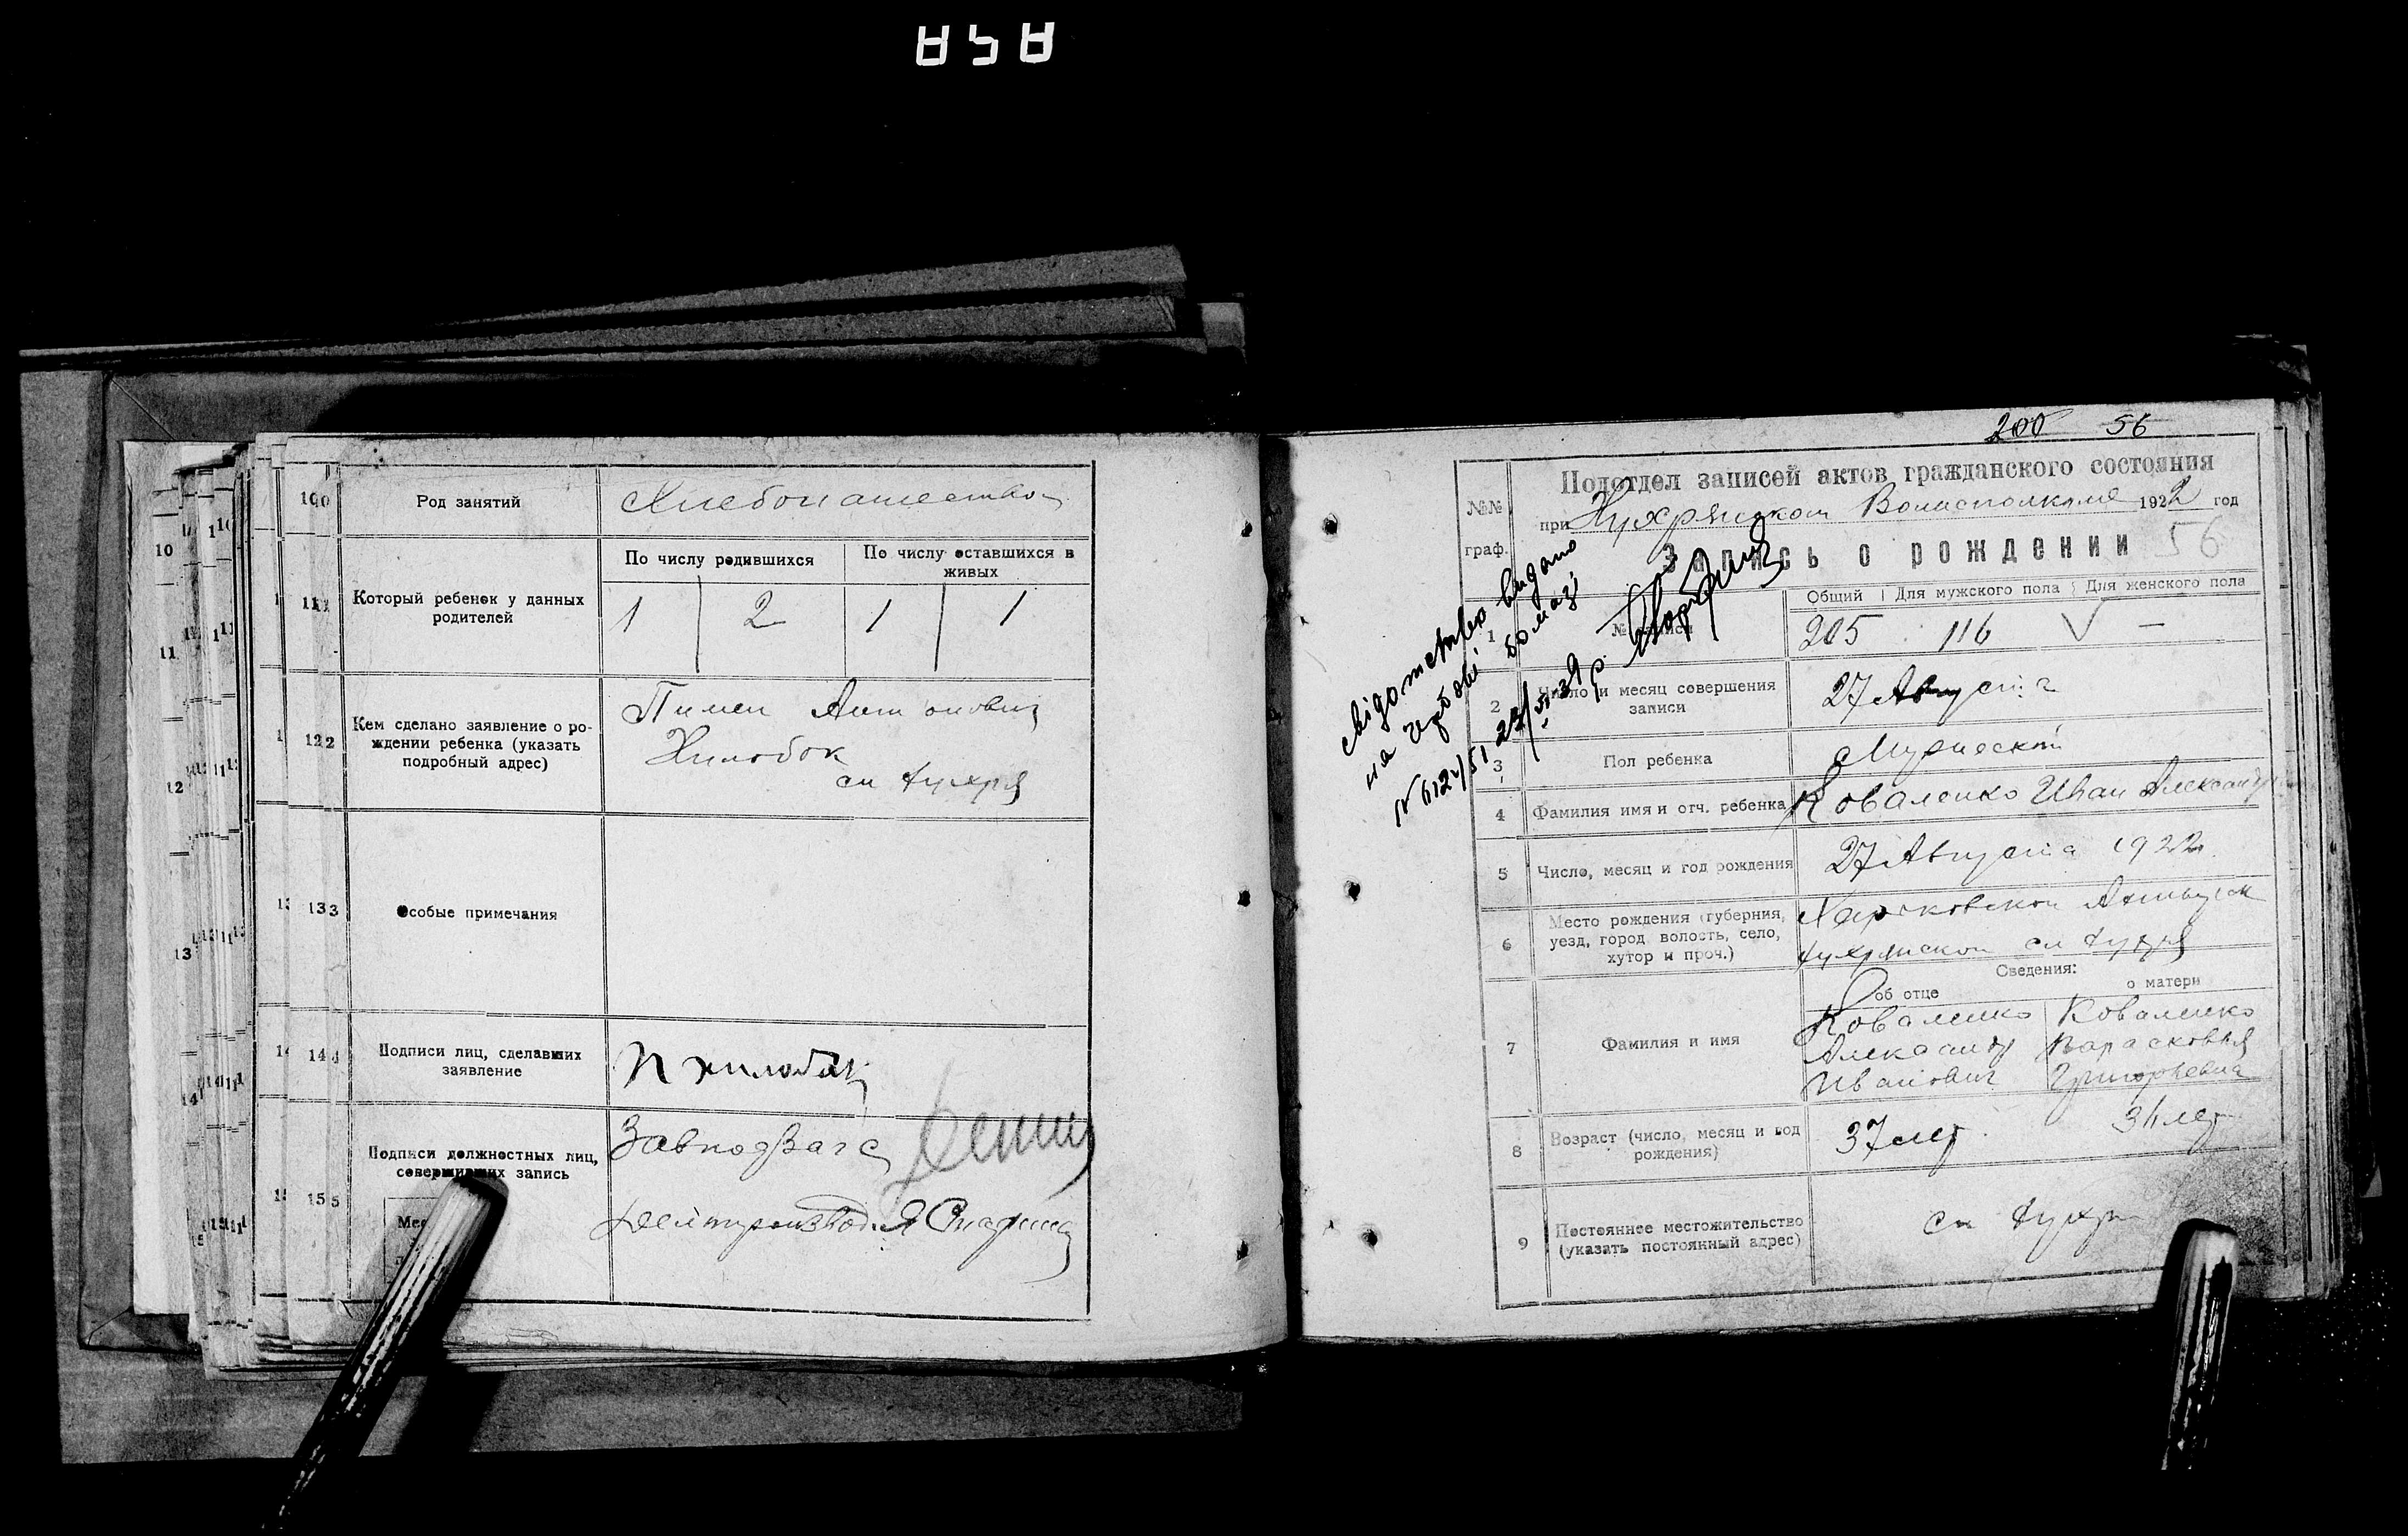 858
10 Род занятий Хлебопашество
11 Который ребенок у данных родителей
По числу родившихся
По числу оставшихся в живых
1 2 1 1
12 Кем сделано заявление о ро-
ждении ребенка (указать
подробный адрес)
Пимен Антонович
Хилобок
сл
13 Особые примечания
14 Подписи лиц, сделавших
заявление
П Хилобок
15 Подписи должностных лиц,
совершивших запись
Завподзагс
Делопроизвод. Я
200 56
№№ граф.
Подотдел записей актов гражданского состояния
при Волисполкоме 1922 год
Запись о рождении 56
свідоцтво видано
на гербові бомазі
Общий Для мужского пола Для женского пола
1 № записи 205 116 V —
2 Число и месяц совершения
записи
27 Августа
3 Пол ребенка Мужеский
4 Фамилия имя и отч. ребенка Коваленко Иван Александр
5 Число, месяц и год рождения 27 Августа 1922
6 Место рождения (губерния,
уезд, город, волость, село,
хутор и проч.)
Харьковской
сл
Сведения:
об отце о матери
7 Фамилия и имя
Коваленко Коваленко
Александр Парасковья
Иванович Григорьевна
8 Возраст (число, месяц и год
рождения)
37 лет лет
9 Постоянное местожительство
(указать постоянный адрес)
сл